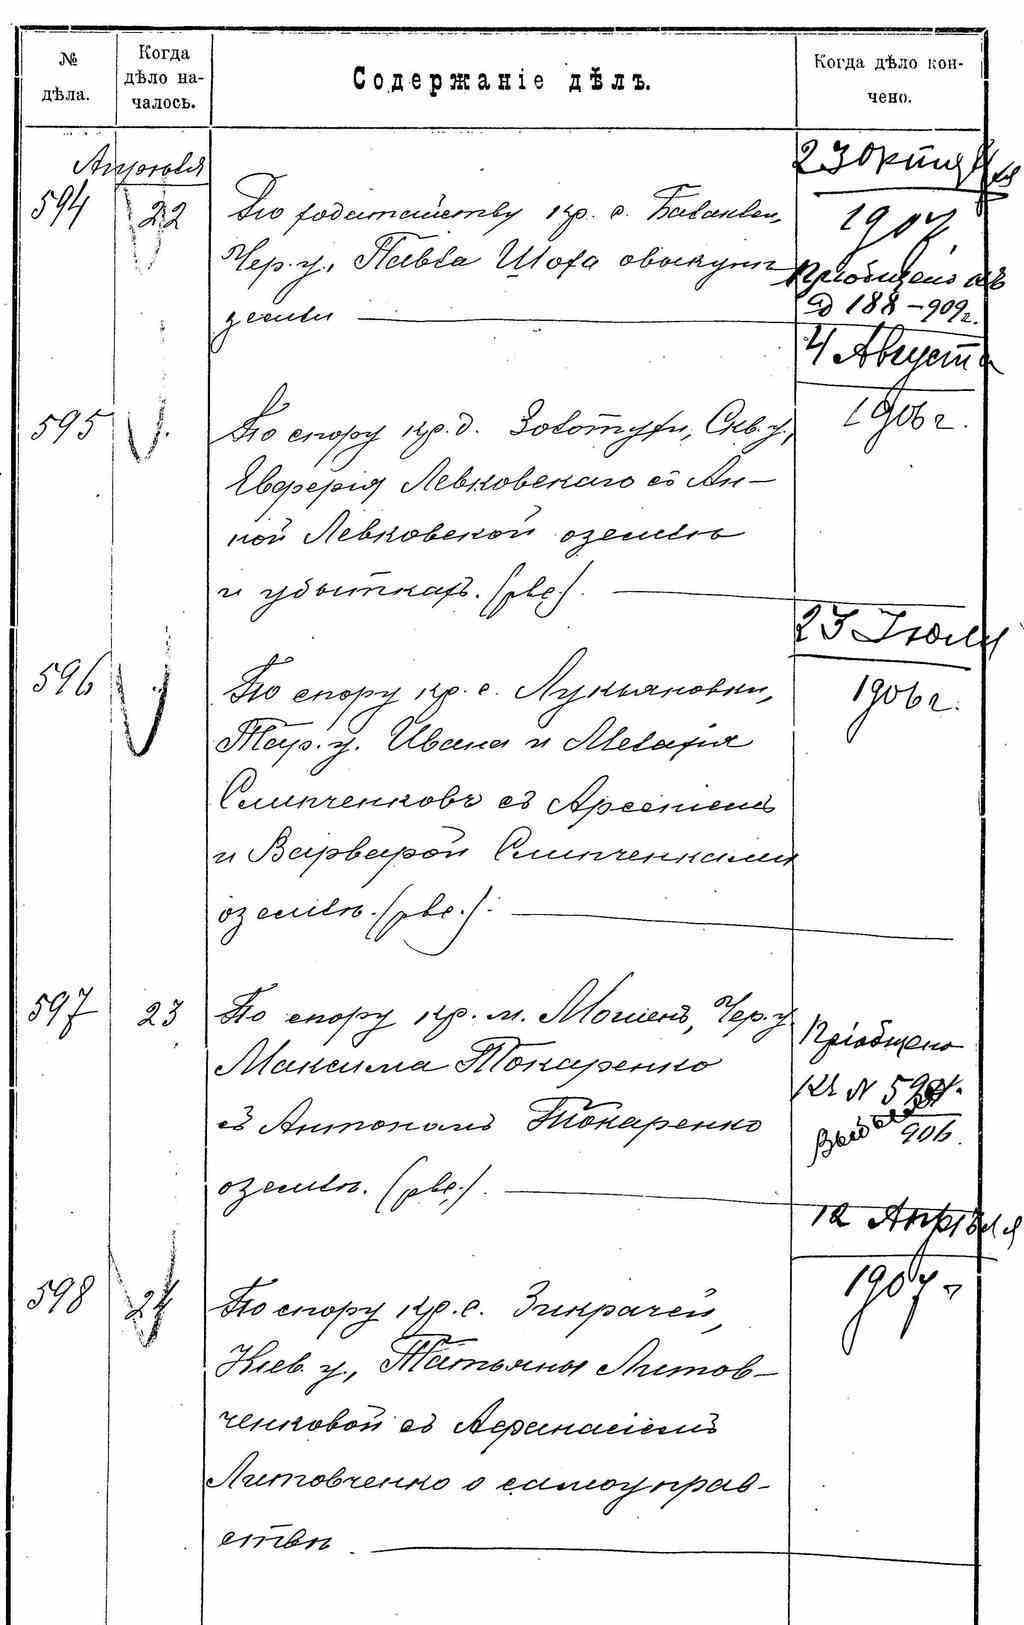 № дѣла.
Когда дѣло на-
чалось.
Содержаніе дѣлъ.
Когда дѣло кон-
чено.
Апрѣля
594
22
По ходатайству кр. с.
Чер. у., Павла Шоха о выкупѣ
земли
23 Октября
1907
Пріобщено къ
д 188-909г.
595
По спору кр. д. Золотухи, Скв. у.,
Евферія Левковскаго съ Ан-
ной Левковской о землѣ
и убыткахъ. (рве.).
4 Августа
1906 г.
596
По спору кр. с. Лукьяновки,
Тар. у. Ивана и Мелафія
Слипченковъ съ Арсеніемъ
и Варварой Слипченками
о землѣ. (рве.).
23 Іюля
1906 г.
597
23
По спору кр. м. Мошенъ, Чер. у
Максима Токаренко
съ Антономъ Токаренко
о землѣ. (рве.).
Пріобщено
къ N
906.
598
24
По спору кр. с. Зикрачей,
Кіев. у., Татьяны Литов-
ченковой съ Афанасіемъ
Литовченко о самоуправ-
ствѣ
12 Апрѣля
1907 г